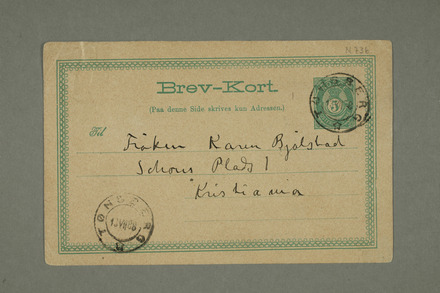 N. 736
Brev-Kort.
(Paa denne Side skrives kun Adressen.)
5
TØNSBERG
Til
Frøken Karen Bjølstad
Schous Plads 1
Kristiania
TØNSBERG